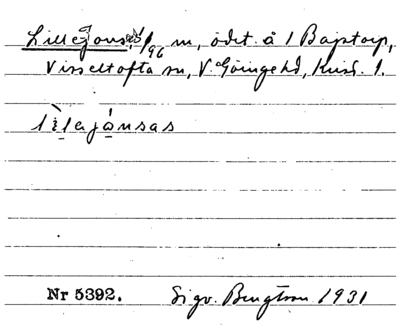 Lillejons, 1/96 m, ödet. å 1 Bajstorp,
Visseltofta sn, V. Göinge hd, Krist. l.
lìlajånsas
Nr 5392. Sigv. Bengtson 1931